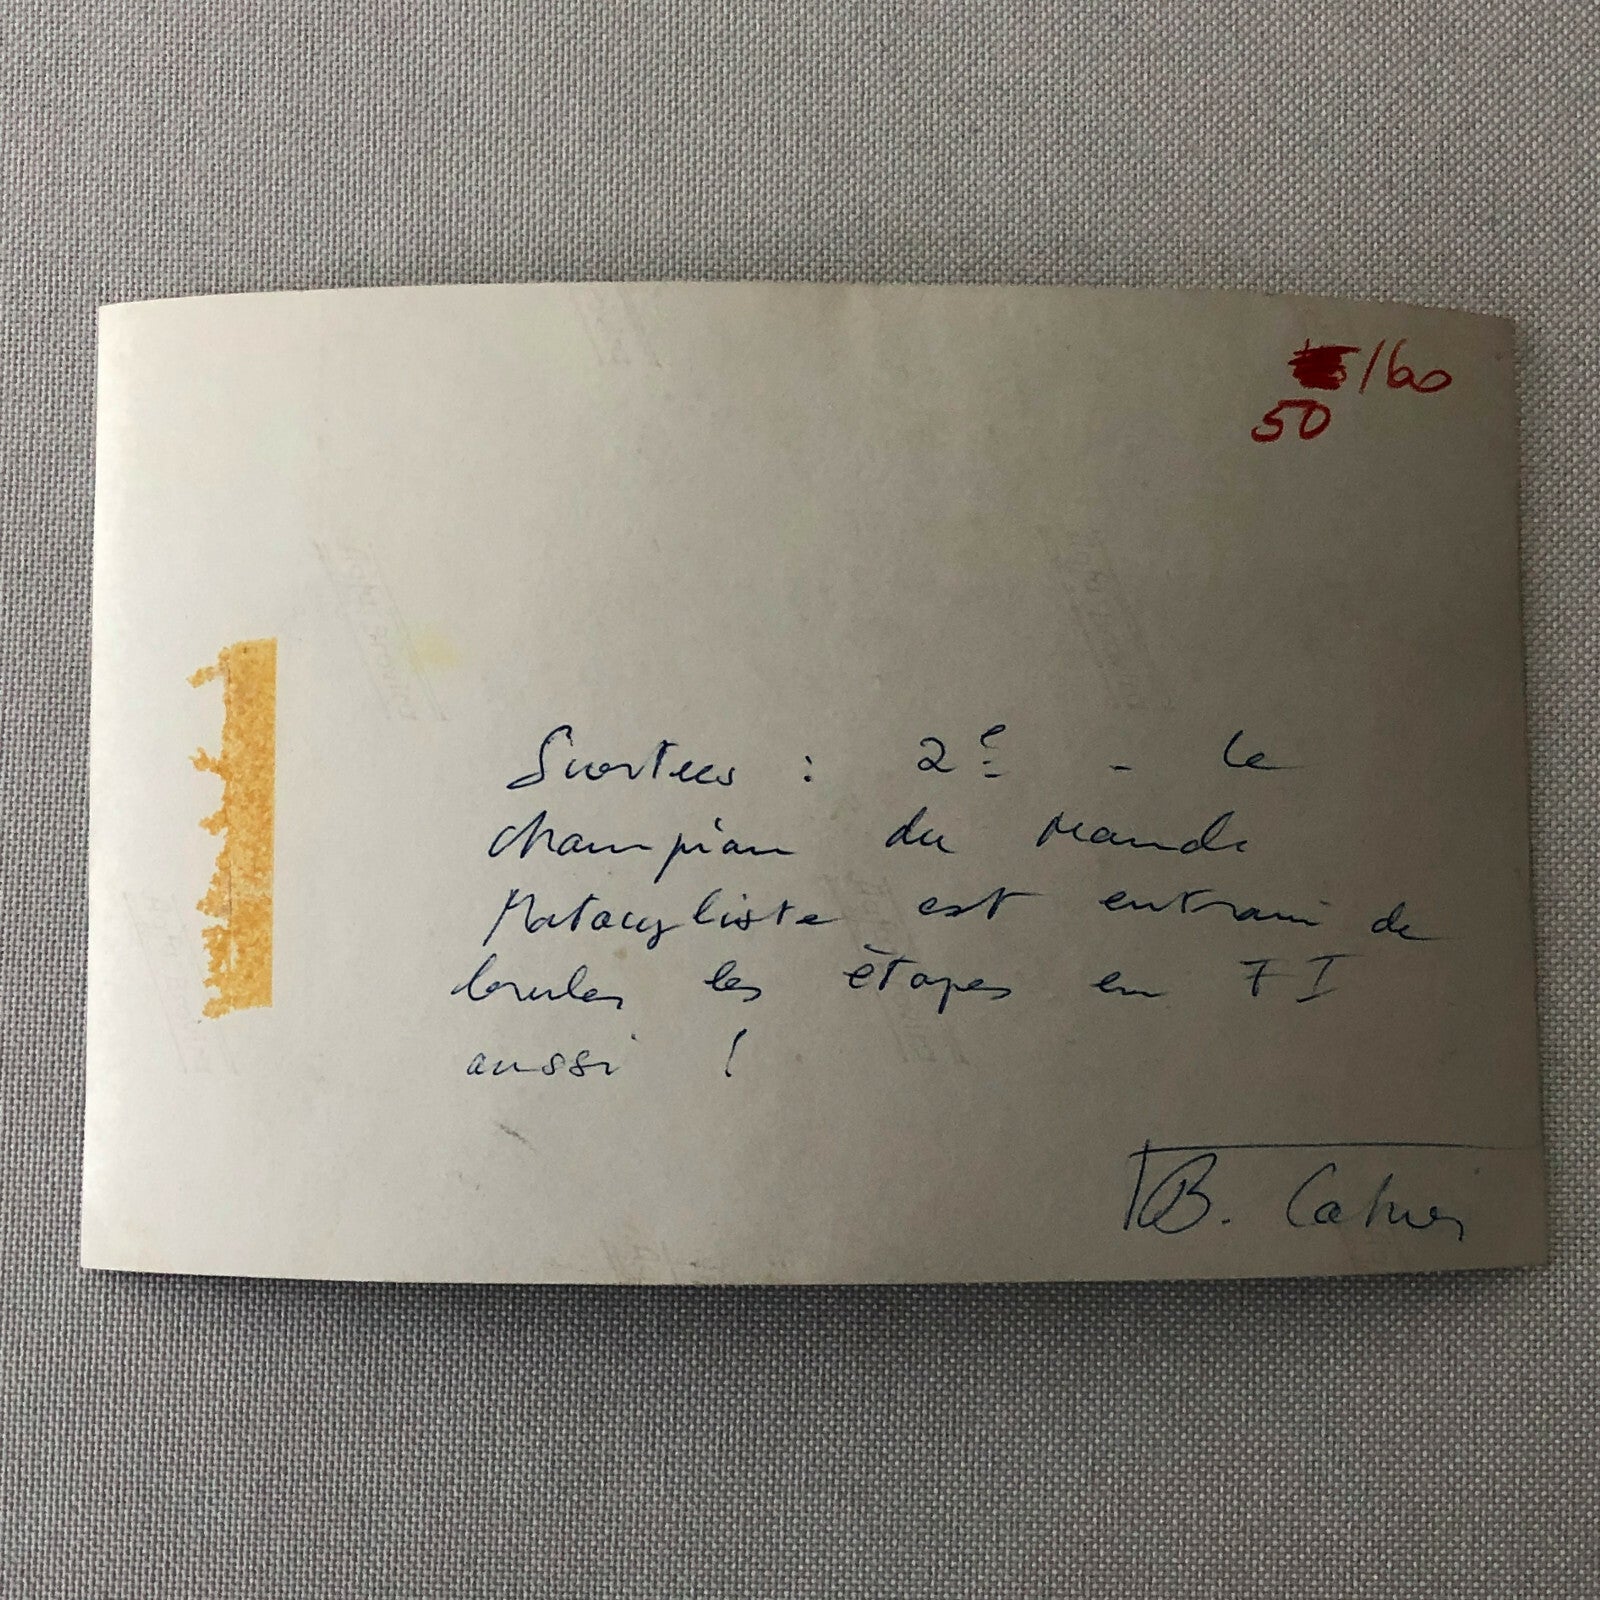 /60
50
Suortees : 2e - le
champion du Monde
Motocycliste est entrain de
bruler les étapes en F I
aussi !
B. Cahier